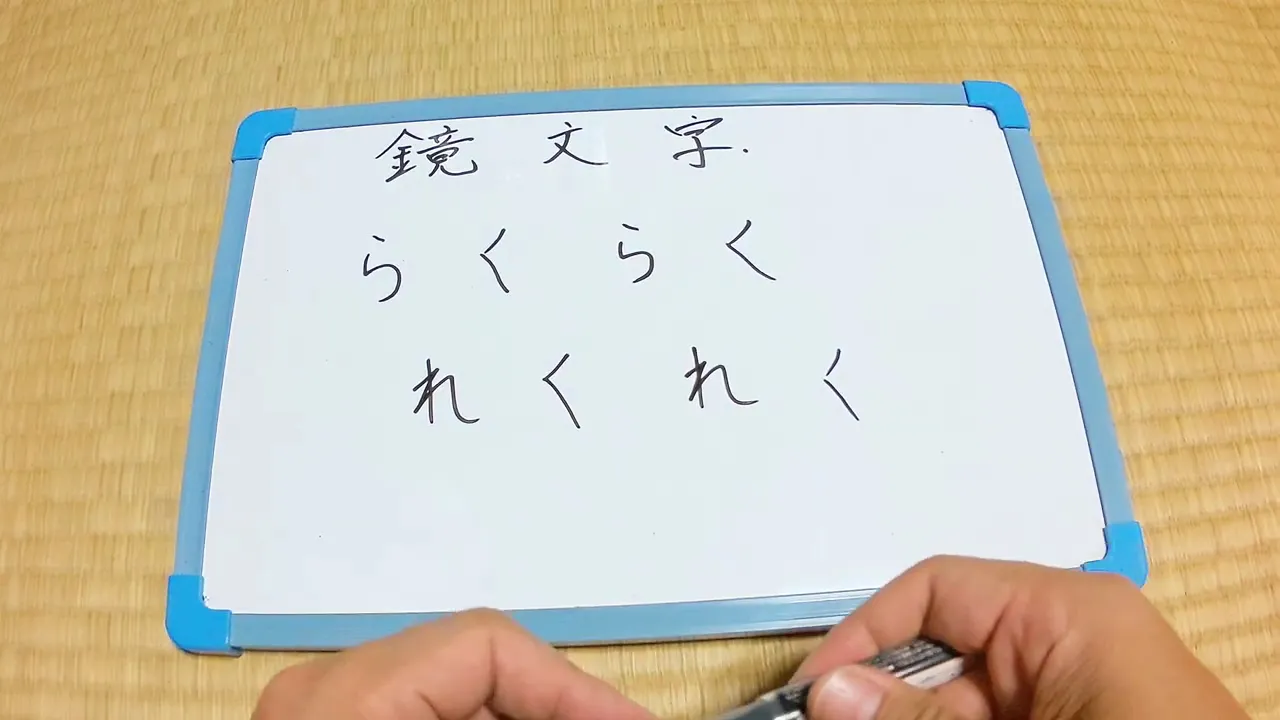 鏡文字.
らくらく
れくれく